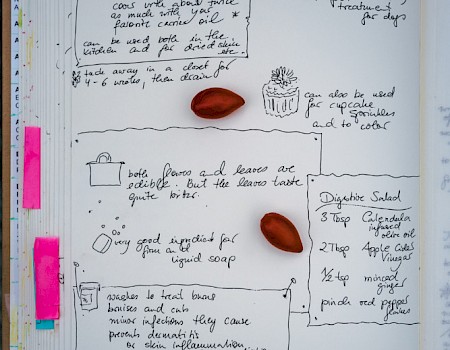 costs with about twice
as much with your
favorite carrier oil *
can be used both in the
kitchen and for dried skin
etc.
treatment
for days
* tuck away in a closet for
4-6 weeks, then drain
can also be used
for cupcake
sprinkles
and to color
both flowers and leaves are
edible. But the leaves taste
quite bitter.
very good ingredient for
liquid soap
Digestive Salad
3 Tbsp Calendula
infused
olive oil
2 Tbsp Apple Cider
Vinegar
1/2 tsp minced
ginger
pinch red pepper
flakes
washes to treat burns
bruises and cuts
minor infections they cause
prevents dermatitis
or skin inflammation